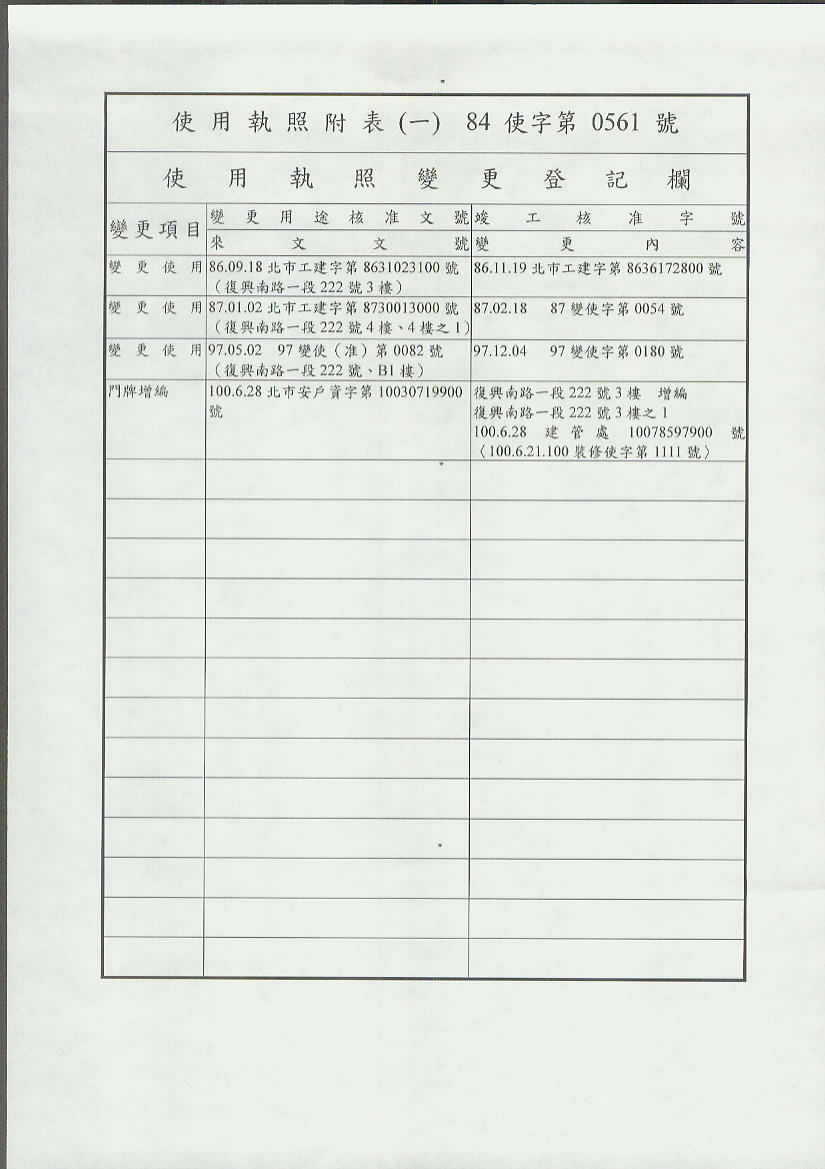 使用執照附表(一) 84 使字第 0561 號
使用執照變更登記欄
變更項目
變更用途核准文號
竣工核准字號
來文文號
變更內容
變更使用
86.09.18 北市工建字第 8631023100 號
（復興南路一段 222 號 3 樓）
86.11.19 北市工建字第 8636172800 號
變更使用
87.01.02 北市工建字第 8730013000 號
（復興南路一段 222 號 4 樓、4 樓之 1）
87.02.18 87 變使字第 0054 號
變更使用
97.05.02 97 變使（准）第 0082 號
（復興南路一段 222 號、B1 樓）
97.12.04 97 變使字第 0180 號
門牌增編
100.6.28 北市安戶資字第 10030719900
號
復興南路一段 222 號 3 樓 增編
復興南路一段 222 號 3 樓之 1
100.6.28 建管處 10078597900 號
〈100.6.21.100 裝修使字第 1111 號〉